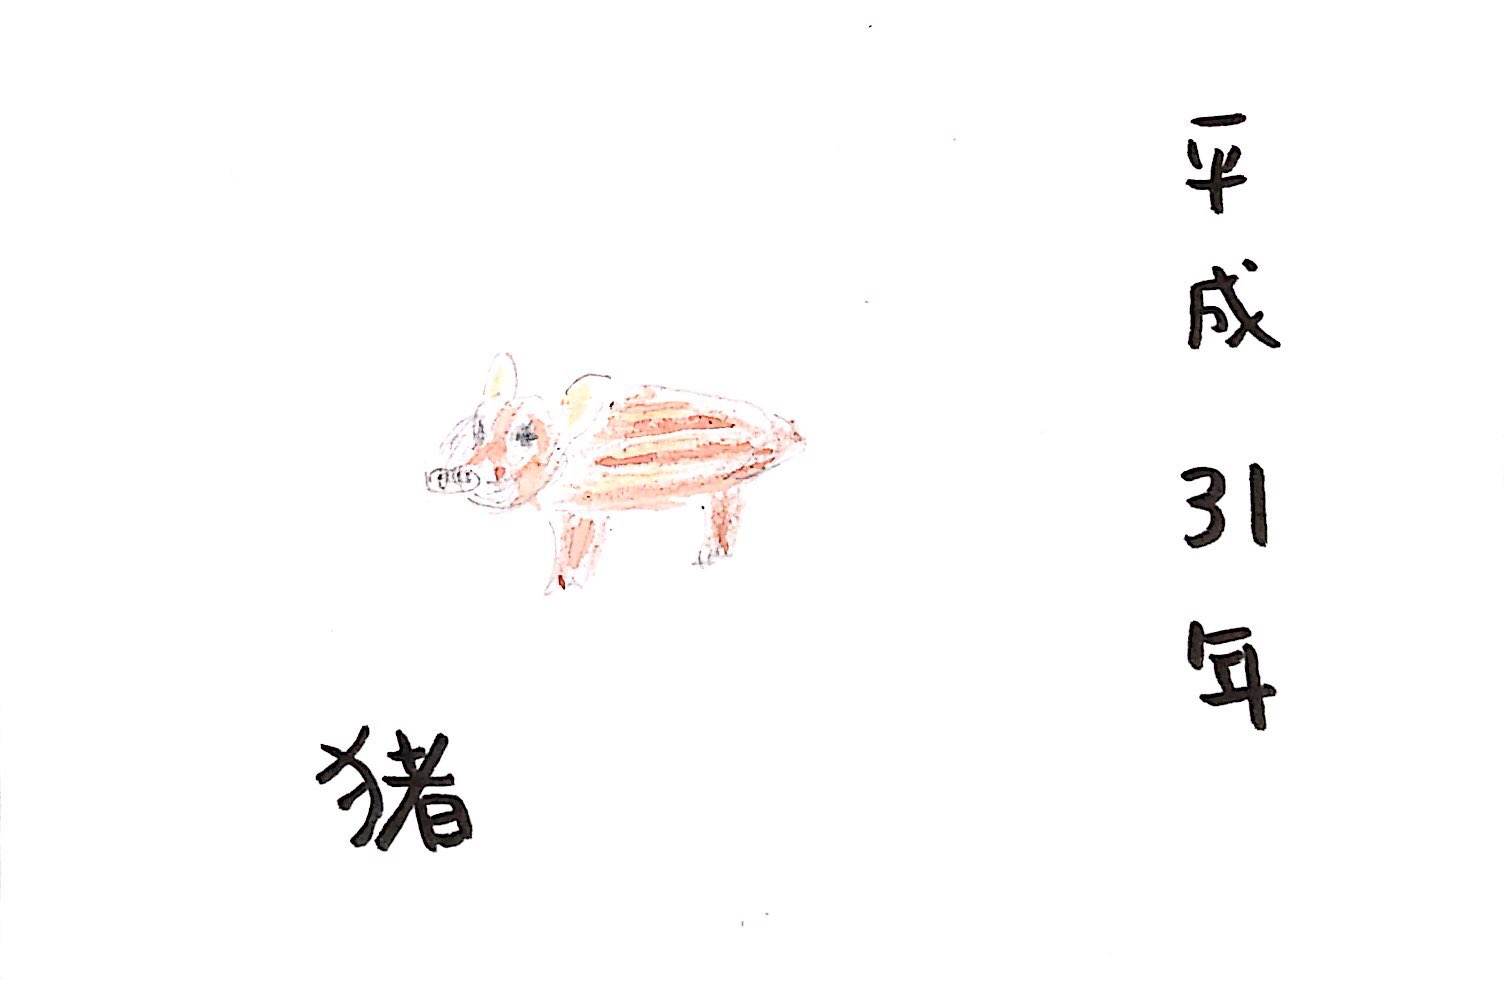 平成31年
猪